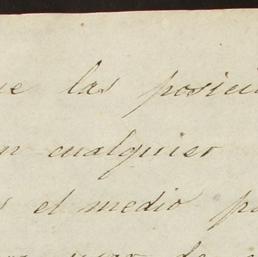 las posici
en cualquier
el medio p
de